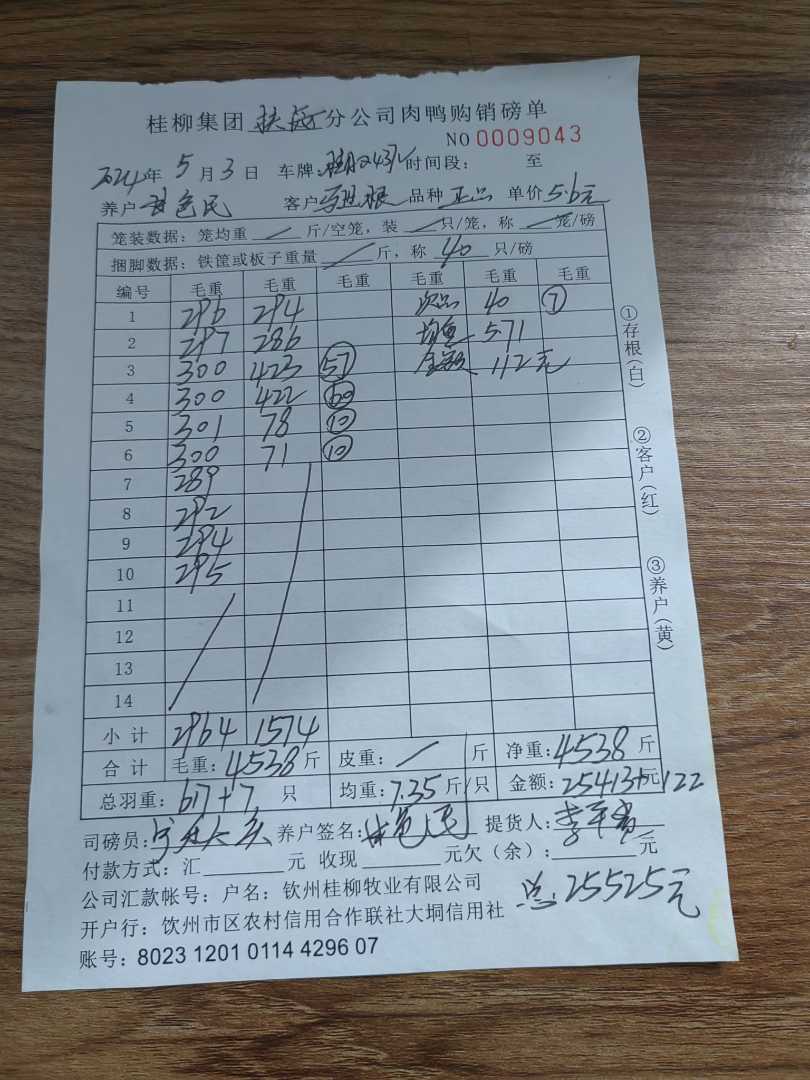 桂柳集团 扶绥 分公司肉鸭购销磅单
NO 0009043
2024年 5月3日 车牌: 时间段: 至
养户 色民 客户 品种 正品 单价 5.6元
笼装数据: 笼均重 / 斤/空笼, 装 / 只/笼, 称 / 笼/磅
捆脚数据: 铁筐或板子重量 / 斤, 称 40 只/磅
编号 毛重 毛重 毛重 毛重 毛重 毛重
1 296 294 次品 40 ⑦
2 297 286 均重 571
3 300 423 57 金额 112元
4 300 422 60
5 301 78 10
6 300 71 10
7 289
8 292
9 294
10 295
11
12
13
14
小计 2964 1574
合计 毛重: 4538 斤 皮重: / 斤 净重: 4538 斤
总羽重: 617+7 只 均重: 7.35 斤/只 金额: 25413 元
司磅员: 养户签名: 色民 提货人:
付款方式: 汇 元 收现 元欠(余): 元
公司汇款帐号: 户名: 钦州桂柳牧业有限公司
总: 25525元
开户行: 钦州市区农村信用合作联社大垌信用社
账号: 8023 1201 0114 4296 07
①存根(白)
②客户(红)
③养户(黄)